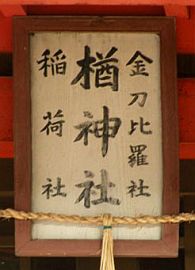 金刀比羅社
楢神社
稲荷社